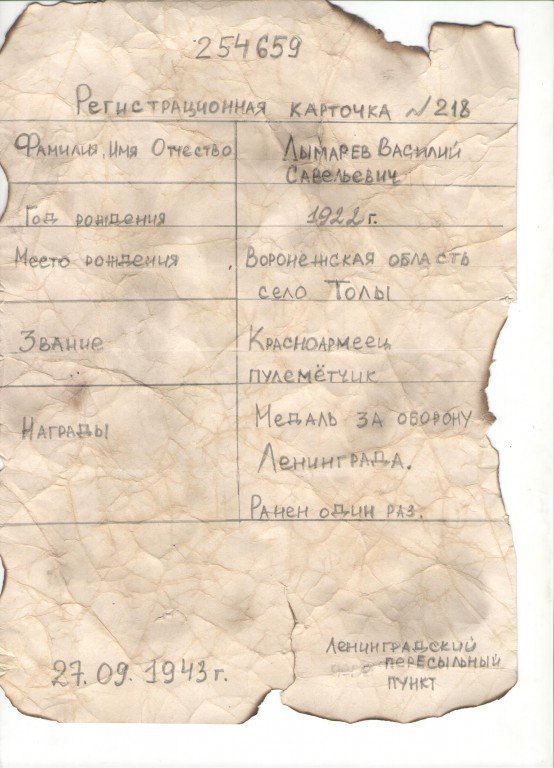 254659
Регистрационная карточка №218
Фамилия, Имя Отчество
Лымарев Василий
Савельевич
Год рождения
1922 г.
Место рождения
Воронежская область
село Толы
Звание
Красноармеец
пулемётчик
Награды
Медаль за оборону
Ленинграда.
Ранен один раз.
27.09.1943 г.
Ленинградский
пересыльный
пункт